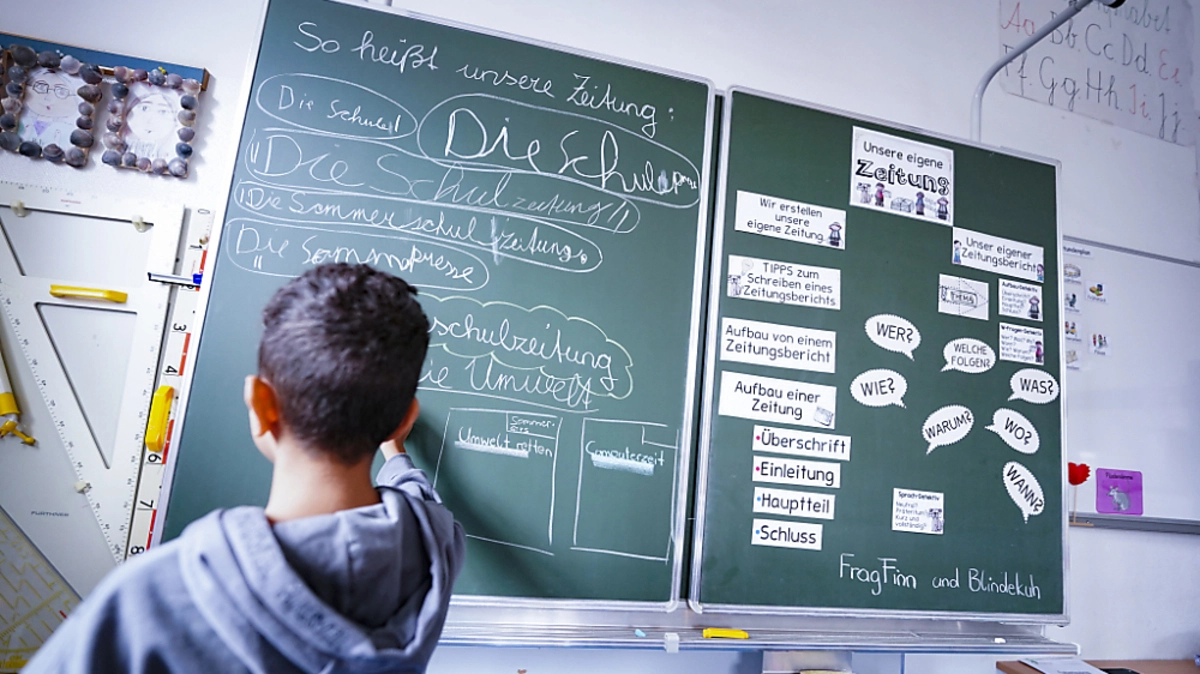 So heißt unsere Zeitung:
Die Schule!
Die Schulpresse
"Die Schulzeitung"
"Die Sommerschulzeitung"
Die Sommpresse
schulzeitung
Umwelt
Sommer-
Umwelt retten
Computerzeit
Unsere eigene
Zeitung
Wir erstellen
unsere
eigene Zeitung
Unser eigener
Zeitungsbericht
TIPPS zum
Schreiben eines
Zeitungsberichts
THEMA
Aufbau von einem
Zeitungsbericht
Aufbau einer
Zeitung
•Überschrift
•Einleitung
•Hauptteil
•Schluss
WER?
WELCHE
FOLGEN?
WIE?
WAS?
WARUM?
WO?
WANN?
Sprach-Detektiv
FragFinn und Blindekuh
Aa Bb Cc Dd Ee
Ff Gg Hh Ii Jj
3
4
6
7
8